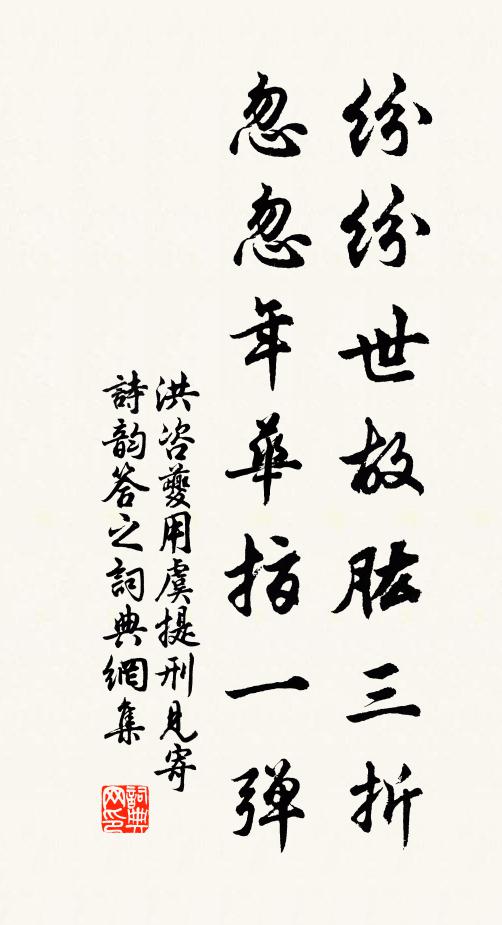 纷纷世故肱三折
忽忽年華指一弹
洪咨夔用虞提刑見寄
詩韵答之詞典網集
詞典网印